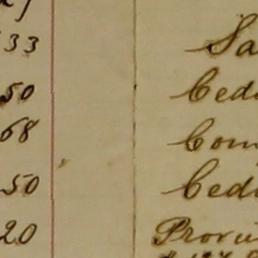 533 Sa
50 Ced
68 Com
50 Ced
20 Provi